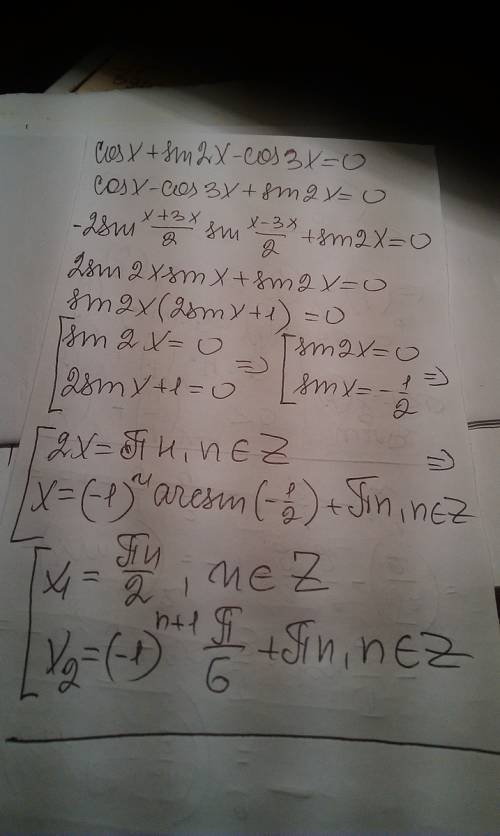 cosx+sin2x-cos3x=0
cosx-cos3x+sin2x=0
-2sin (x+3x)/2 sin (x-3x)/2 +sin2x=0
2sin2xsinx+sin2x=0
sin2x(2sinx+1)=0
[sin2x=0 => [sin2x=0
2sinx+1=0 sinx=-1/2 =>
[2x=πn, n∈Z =>
x=(-1)ⁿarcsin(-1/2)+πn, n∈Z
[x₁=πn/2, n∈Z
x₂=(-1)ⁿ⁺¹ π/6 +πn, n∈Z